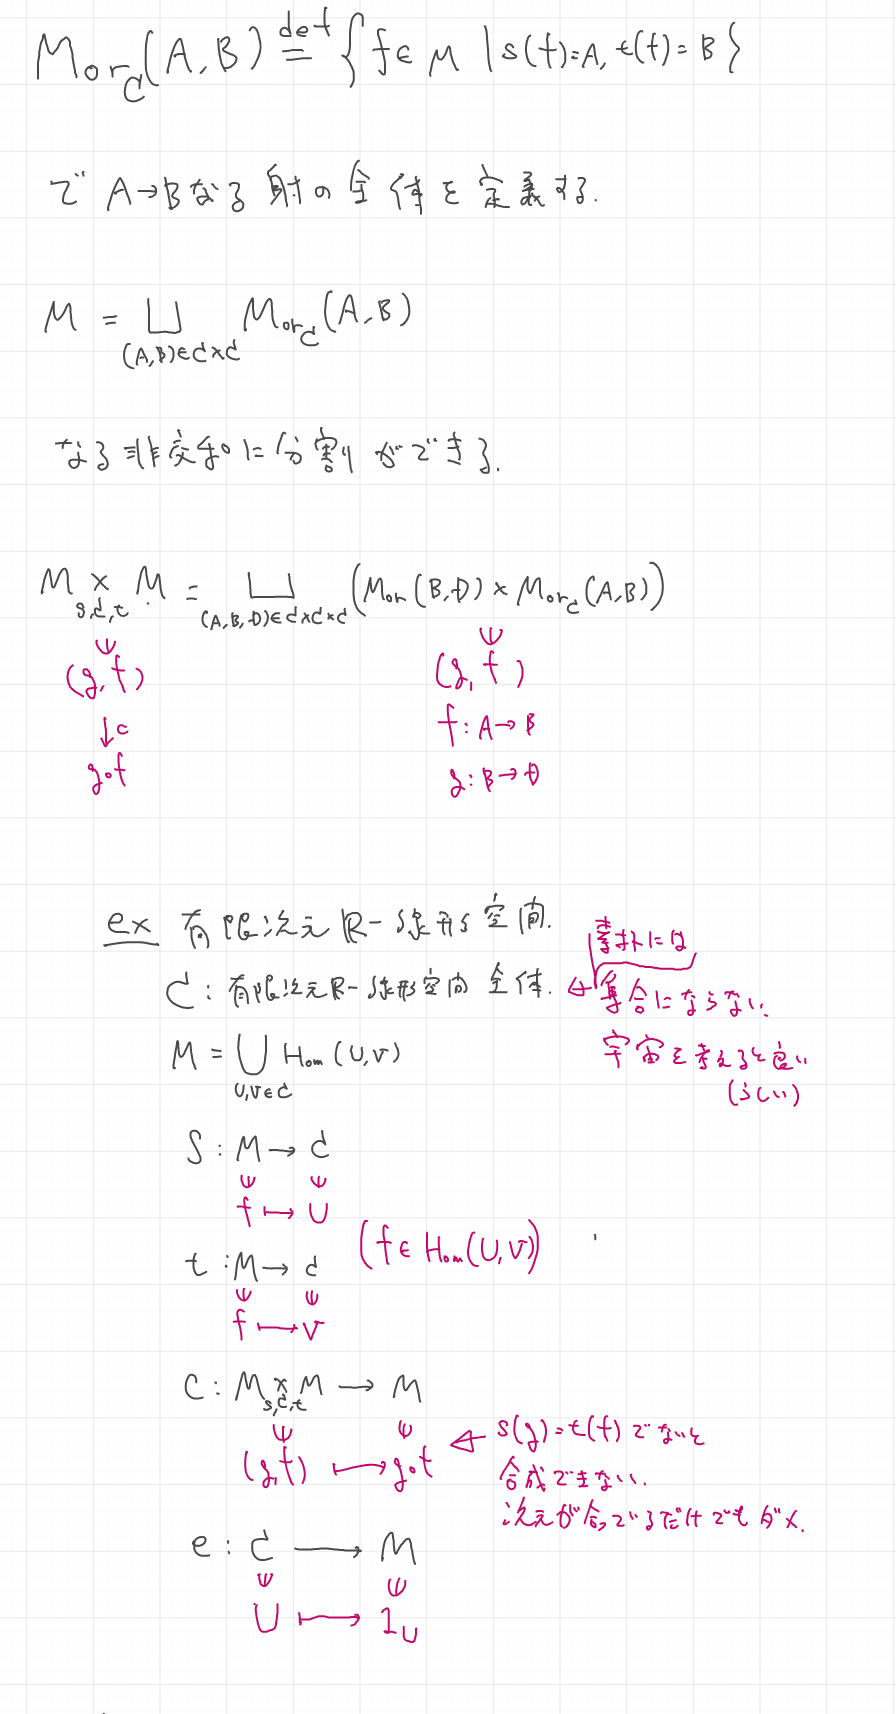 Mor_C(A,B) def= {f∈M | s(f)=A, t(f)=B}
で A→Bなる 射の全体を定義する.
M = ⊔_{(A,B)∈C×C} Mor_C(A,B)
なる非交和に分割ができる.
M ×_{s,C,t} M = ⊔_{(A,B,D)∈C×C×C} (Mor(B,D) × Mor_C(A,B))
∈ ∈
(g,f) (g,f)
↓c f: A→B
g∘f g: B→D
ex 有限次元 R-線形空間.
素朴には
C: 有限次元R-線形空間 全体. ← 集合にならない.
宇宙を考えると良い
M = ∪_{U,V∈C} Hom(U,V)
(らしい)
S: M → C
∈ ∈
f ↦ U
(f∈Hom(U,V))
t: M → C
∈ ∈
f ↦ V
C: M ×_{s,C,t} M → M
∈ ∈
(g,f) ↦ g∘f ← s(g)=t(f) でないと
合成できない.
次元が合っているだけでもダメ.
e: C → M
∈ ∈
U ↦ 1_U